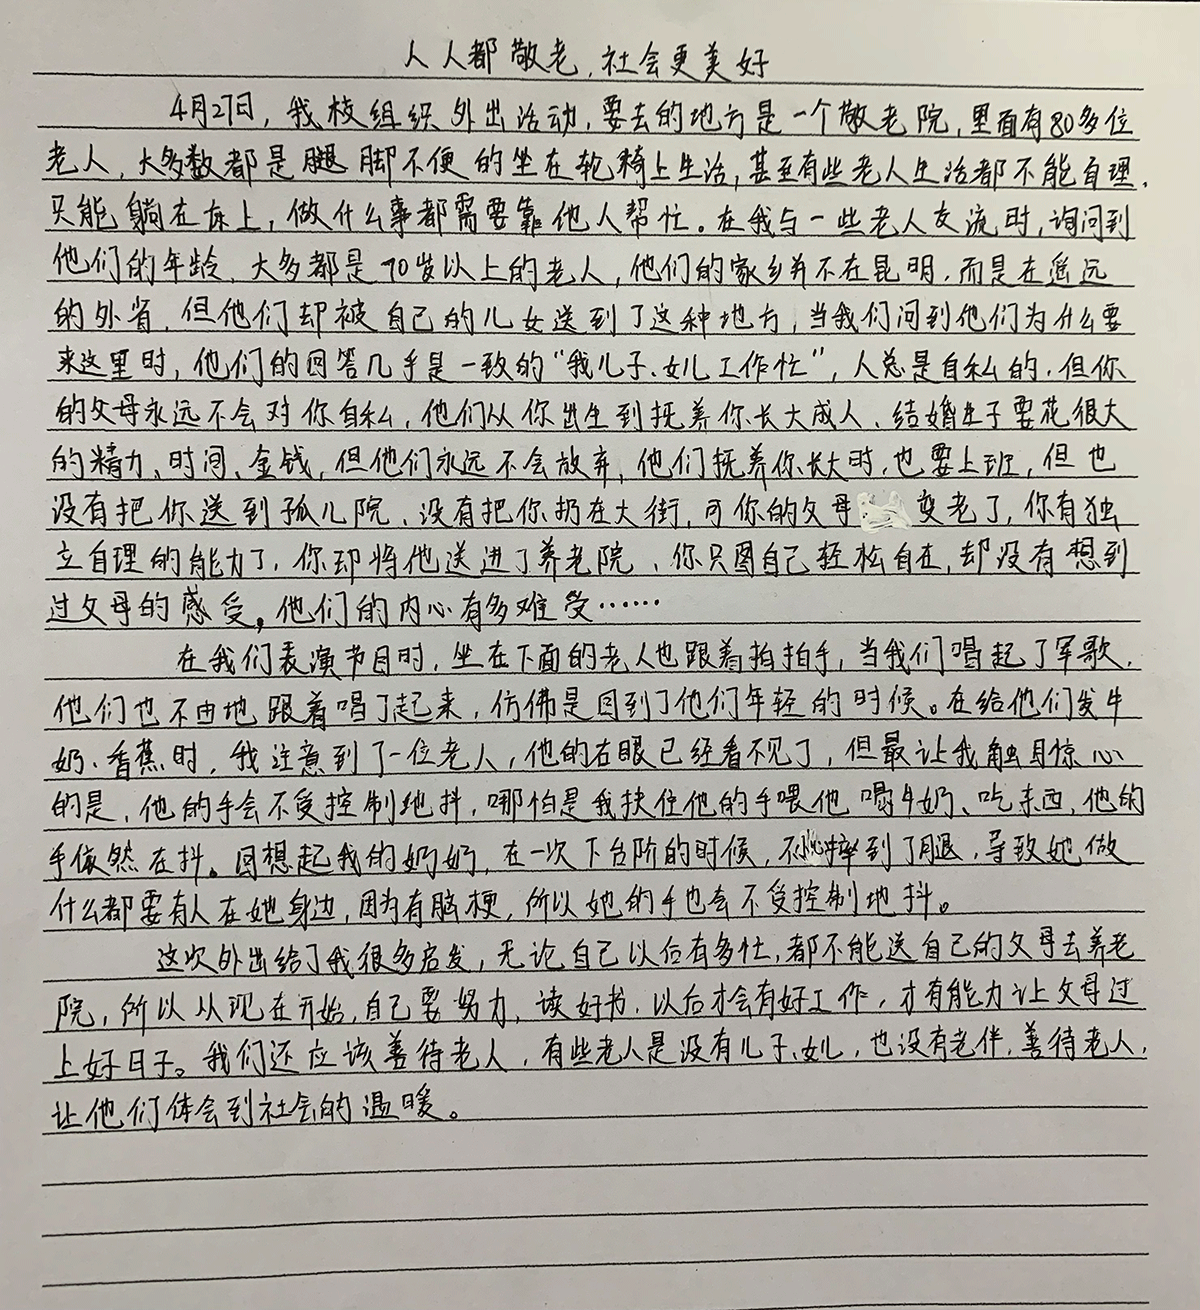 人人都敬老,社会更美好
4月27日,我校组织外出活动,要去的地方是一个敬老院,里面有80多位
老人,大多数都是腿脚不便的坐在轮椅上生活,甚至有些老人生活都不能自理,
只能躺在床上,做什么事都需要靠他人帮忙。在我与一些老人交流时,询问到
他们的年龄,大多都是70岁以上的老人,他们的家乡并不在昆明,而是在遥远
的外省,但他们却被自己的儿女送到了这种地方,当我们问到他们为什么要
来这里时,他们的回答几乎是一致的“我儿子、女儿工作忙”,人总是自私的,但你
的父母永远不会对你自私,他们从你出生到抚养你长大成人、结婚生子要花很大
的精力、时间、金钱,但他们永远不会放弃,他们抚养你长大时,也要上班,但也
没有把你送到孤儿院、没有把你扔在大街,可你的父母变老了,你有独
立自理的能力了,你却将他送进了养老院、你只图自己轻松自在,却没有想到
过父母的感受,他们的内心有多难受……
在我们表演节目时,坐在下面的老人也跟着拍拍手,当我们唱起了军歌,
他们也不由地跟着唱了起来,仿佛是回到了他们年轻的时候。在给他们发牛
奶、香蕉时,我注意到了一位老人,他的右眼已经看不见了,但最让我触目惊心
的是,他的手会不受控制地抖,哪怕是我扶住他的手喂他喝牛奶、吃东西,他的
手依然在抖。回想起我的奶奶,在一次下台阶的时候,不摔到了腿,导致她做
什么都要有人在她身边,因为有脑梗,所以她的手也会不受控制地抖。
这次外出给了我很多启发,无论自己以后有多忙,都不能送自己的父母去养老
院,所以从现在开始,自己要努力,读好书,以后才会有好工作,才有能力让父母过
上好日子。我们还应该善待老人,有些老人是没有儿子、女儿,也没有老伴,善待老人,
让他们体会到社会的温暖。